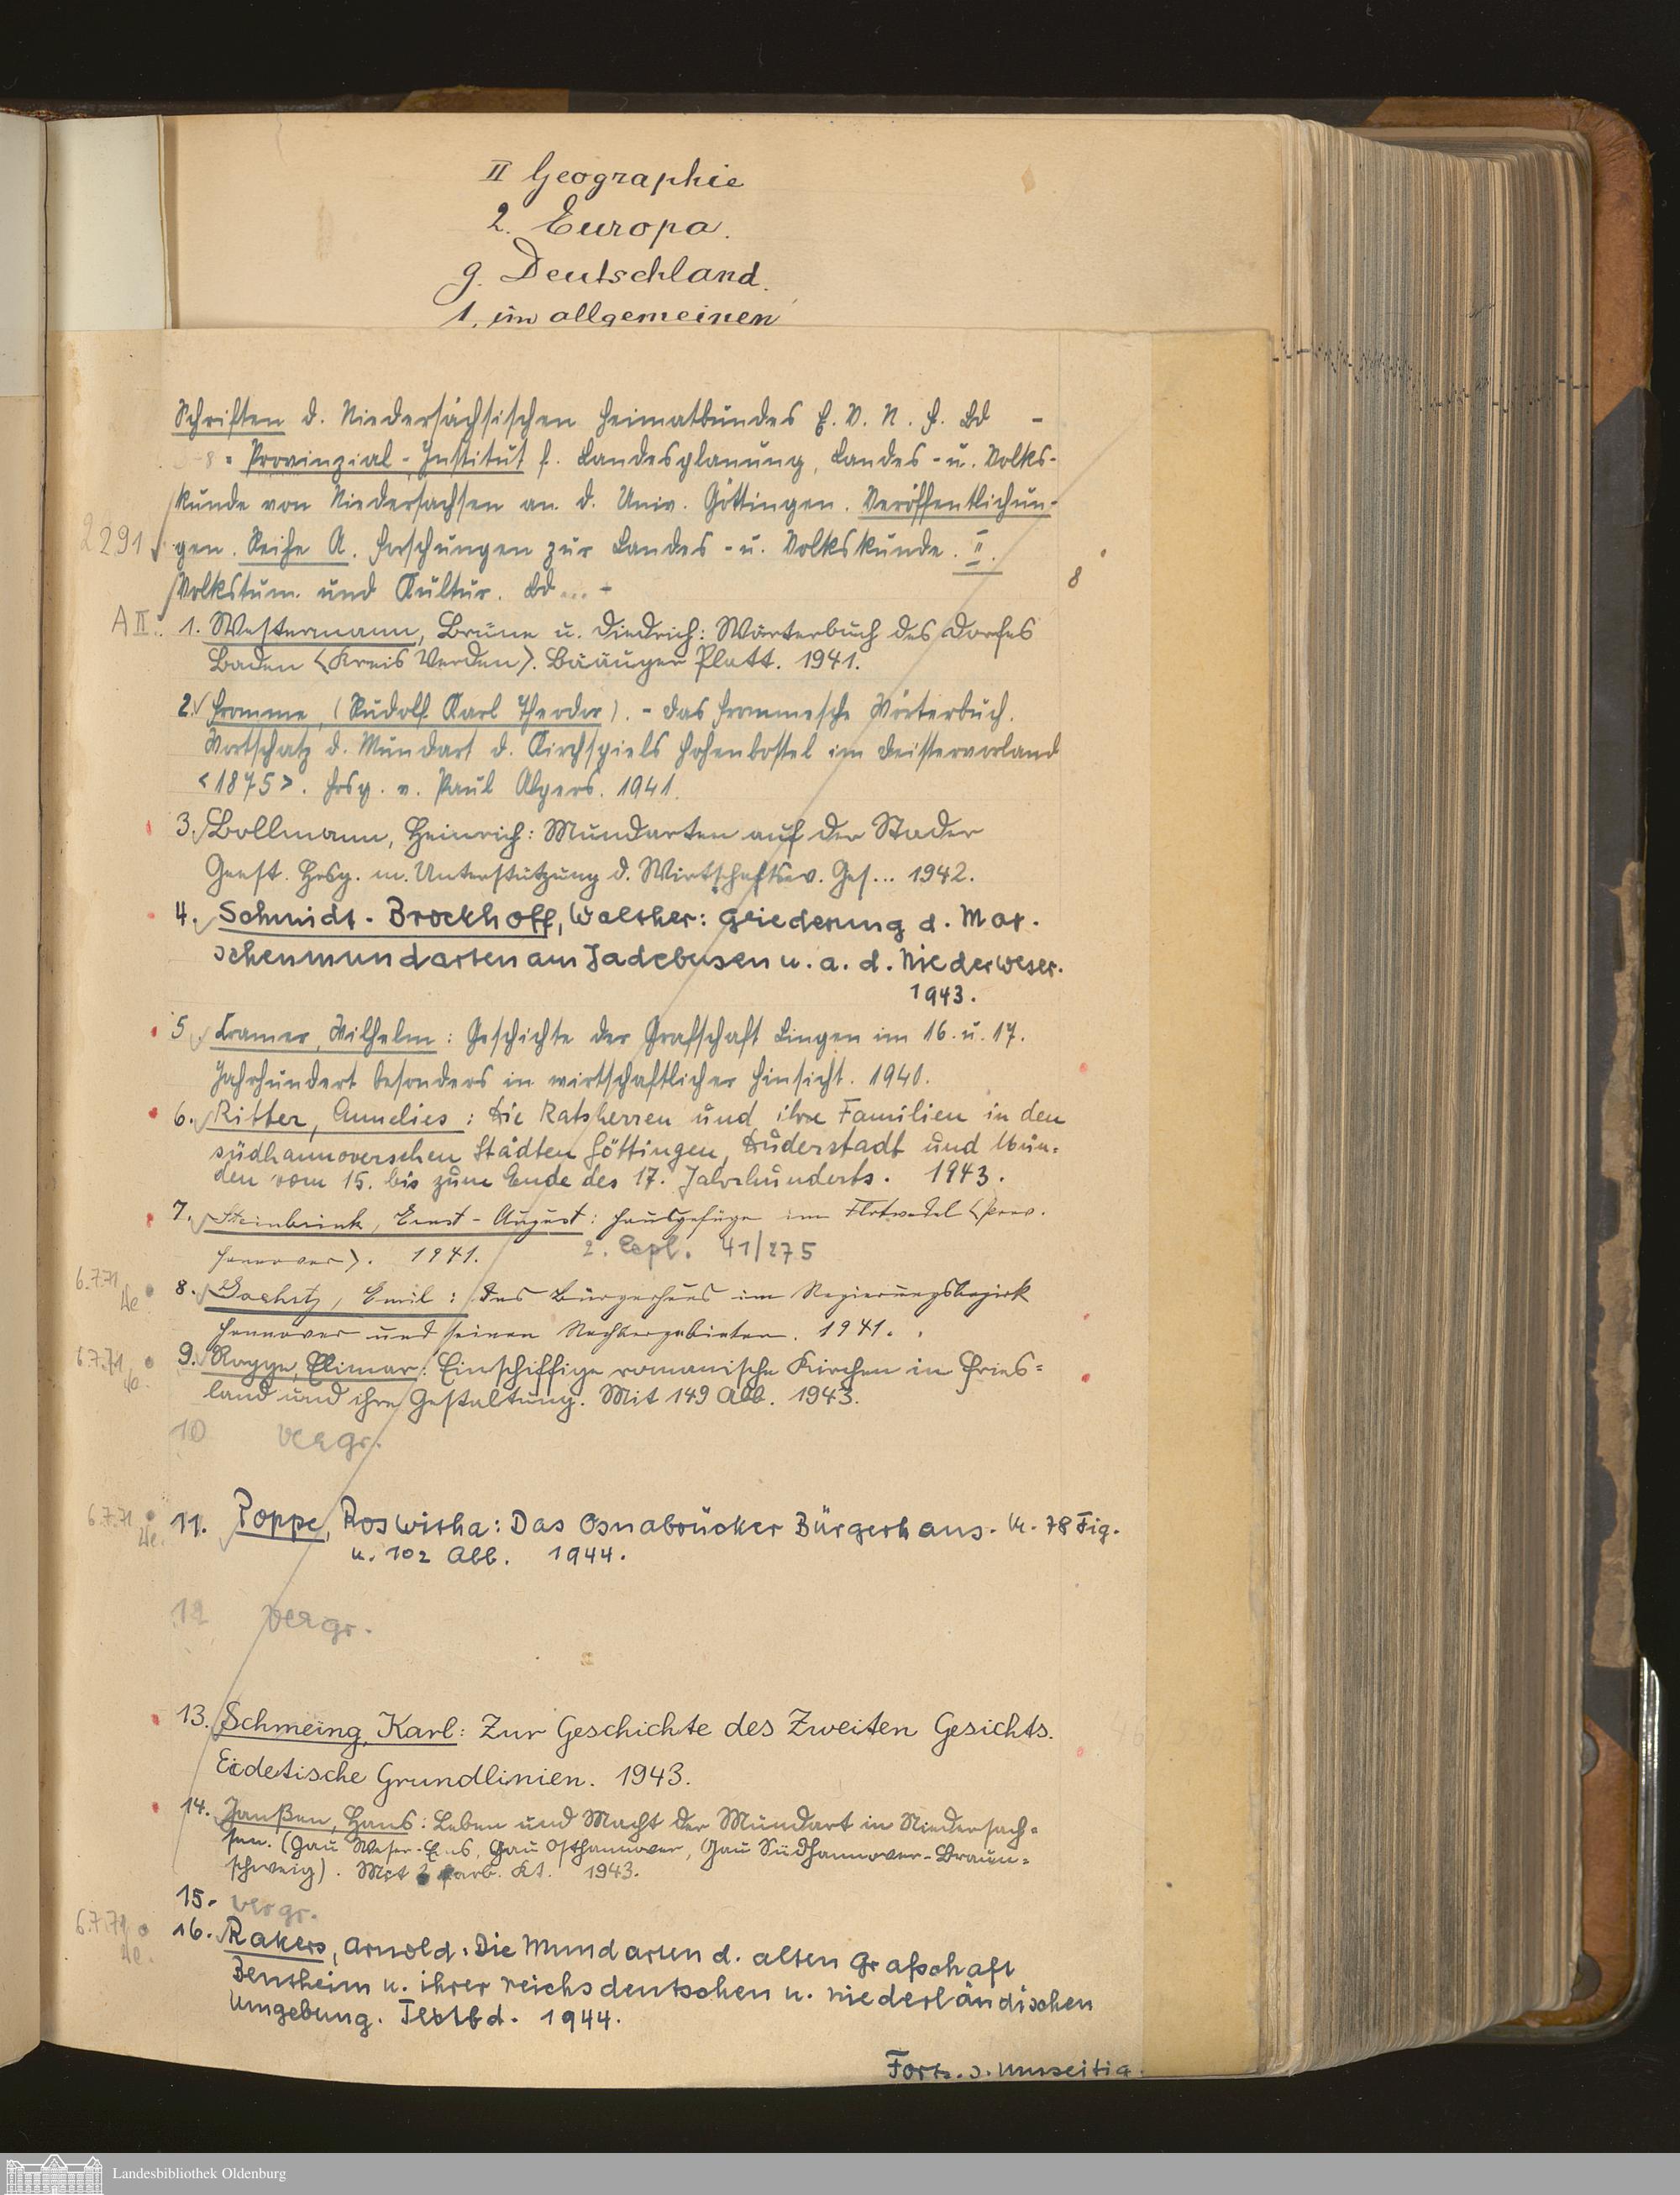 II Geographie
2. Europa.
g. Deutschland.
1. im allgemeinen
Schriften d. Niedersächsischen Heimatbundes E. V. N. F. Bd -
8 = Provinzial-Institut f. Landesplanung, Landes- u. Volks-
kunde von Niedersachsen an d. Univ. Göttingen. Veröffentlichun-
2291 gen. Reihe A. Forschungen zur Landes- u. Volkskunde. II.
Volkstum und Kultur. Bd... -
8
A II. 1. Westermann, Brüne u. Diedrich: Wörterbuch des Dorfes
Baden <Kreis Verden>. Bääuger Platt. 1941.
2. Fromme, (Rudolf Karl Theodor). - Das Frommesche Wörterbuch.
Wortschatz d. Mundart d. Kirchspiels Hohenbostel im Deistervorland
<1875>. Hrsg. v. Paul Alpers. 1941.
3. Bollmann, Heinrich: Mundarten auf der Stader
Geest. Hrsg. m. Unterstützung d. Wirtschaftsw. Ges... 1942.
4. Schmidt-Brockhoff, Walther: Gliederung d. Mar-
schenmundarten am Jadebusen u. a. d. Niederweser.
1943.
5. Cramer, Wilhelm: Geschichte der Grafschaft Lingen im 16. u. 17.
Jahrhundert besonders in wirtschaftlicher Hinsicht. 1940.
6. Ritter, Annelies: Die Ratsherren und ihre Familien in den
südhannoverschen Städten Göttingen, Duderstadt und Mün-
den vom 15. bis zum Ende des 17. Jahrhunderts. 1943.
7. Steinbrink, Ernst-August: Hausgefüge im Flotwedel <Prov.
Hannover>. 1941. 2. Expl. 41/275
6.7.71 8. Gachnitz, Emil: Das Bürgerhaus im Regierungsbezirk
Hannover und seinen Nachbargebieten. 1941.
6.7.71 9. Rogge, Elimar: Einschiffige romanische Kirchen in Fries=
land und ihre Gestaltung. Mit 149 Abb. 1943.
10 vergr.
6.7.71 11. Poppe, Roswitha: Das Osnabrücker Bürgerhaus. M. 78 Fig.
u. 102 Abb. 1944.
12 vergr.
13. Schmeing, Karl: Zur Geschichte des Zweiten Gesichts.
Eidetische Grundlinien. 1943.
14. Janßen, Hans: Leben und Macht der Mundart in Niedersach=
sen. (Gau Weser-Ems, Gau Osthannover, Gau Südhannover-Braun=
schweig). Mit farb. Kt. 1943.
15. vergr.
6.7.71 16. Rakers, Arnold: Die Mundarten d. alten Grafschaft
Bentheim u. ihrer reichsdeutschen u. niederländischen
Umgebung. Textbd. 1944.
Forts. s. umseitig.
Landesbibliothek Oldenburg